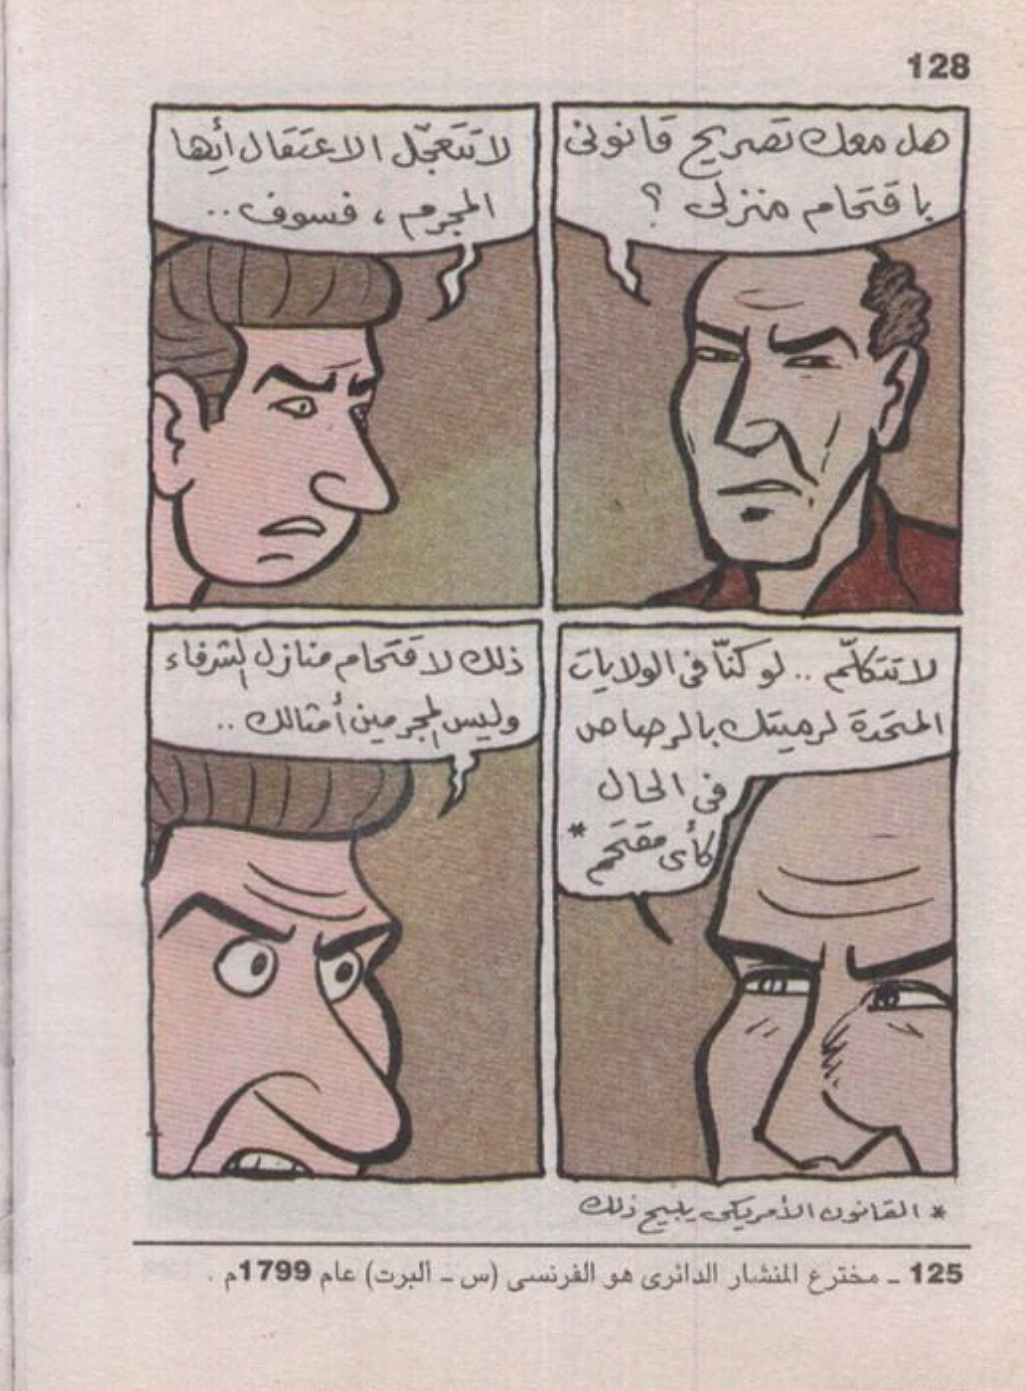 128
هل معك تصريح قانونى
باقتحام منزلى ؟
لا تتعجّل الاعتقال أيها
المجرم ، فسوف ..
لا تتكلّم .. لو كنّا فى الولايات
المتحدة لرميتك بالرصاص
فى الحال
كأى مقتحم *
ذلك لاقتحام منازل الشرفاء
وليس المجرمين أمثالك ..
* القانون الأمريكى يبيح ذلك
125 ـ مخترع المنشار الدائرى هو الفرنسى (س ـ ألبرت) عام 1799م .